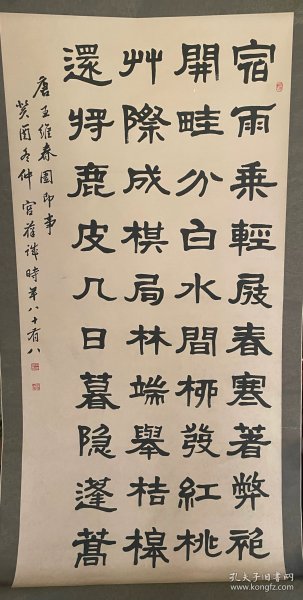 宿雨乘輕屐春寒著弊袍
開畦分白水間柳發紅桃
艸際成棋局林端舉桔槔
還将鹿皮几日暮隐蓬蒿
唐王維春園即事
癸酉冬仲 宫葆誠時年八十有八
孔夫子旧书网
www.kongfz.com